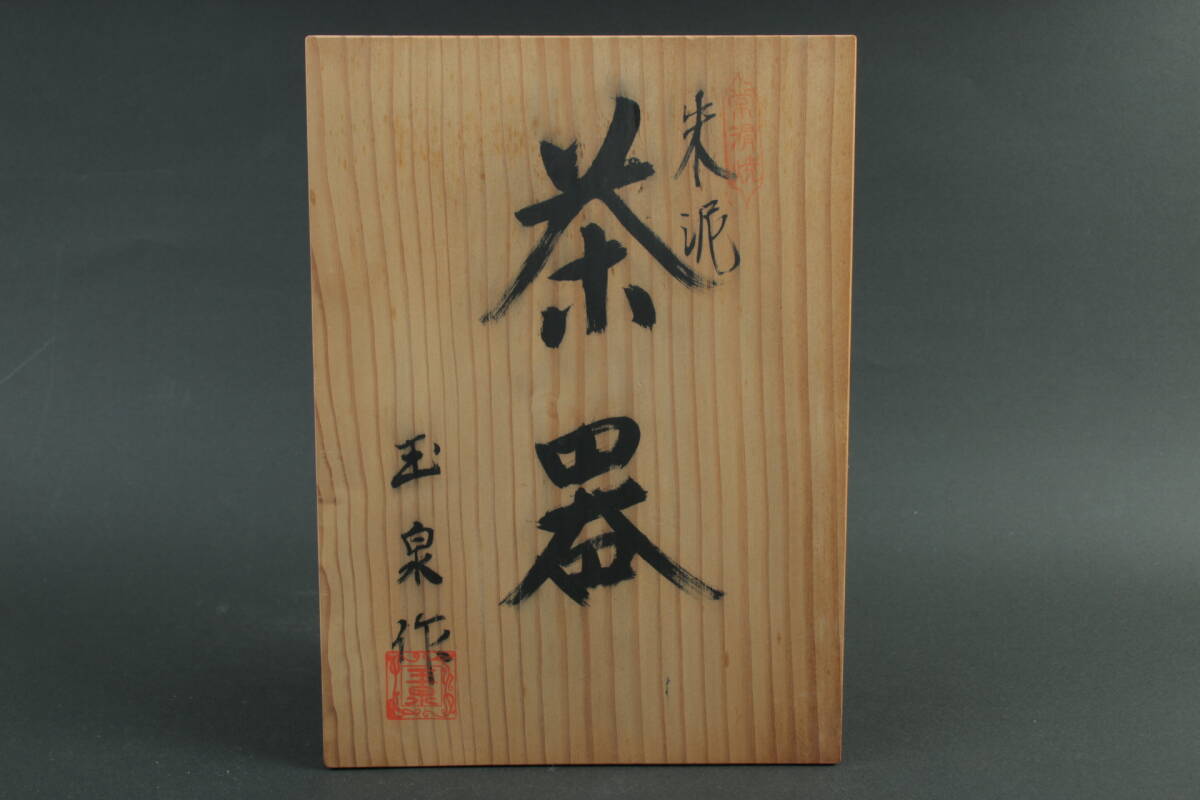 常滑焼
朱泥
茶器
玉泉作
玉泉